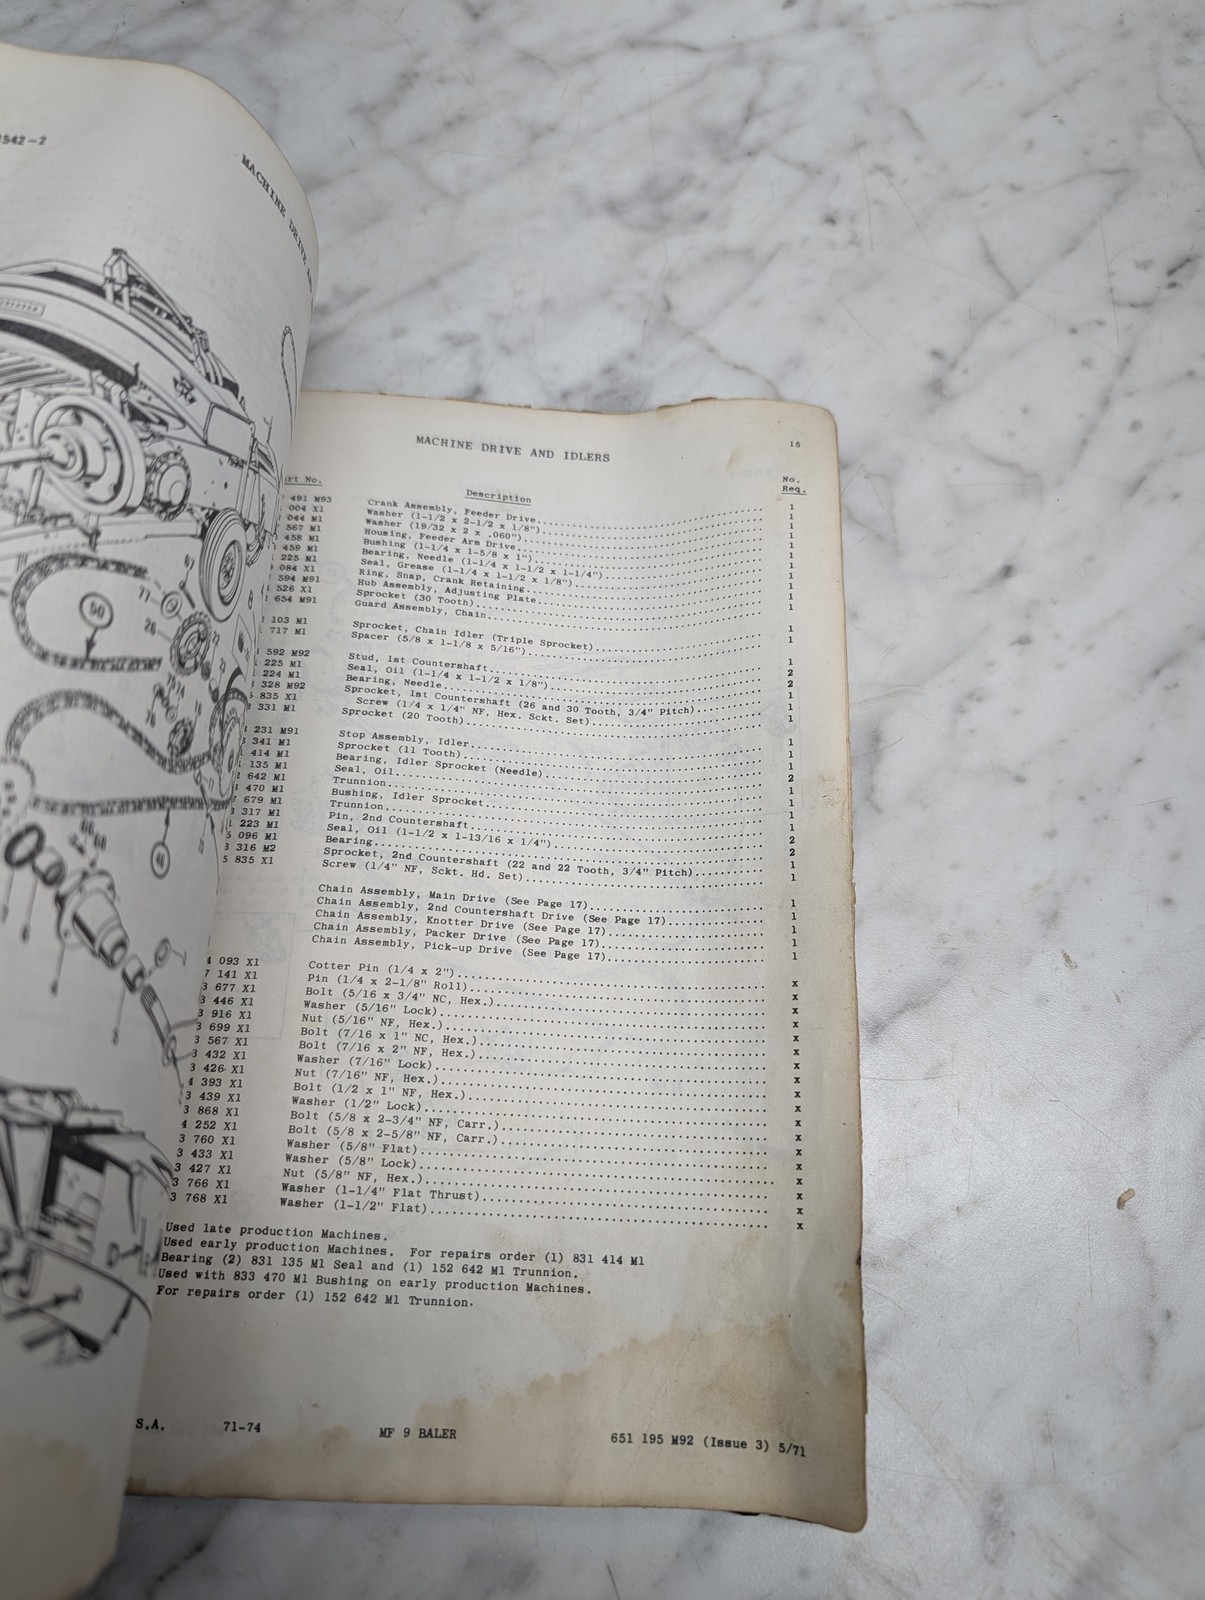 1542-2
MACHINE DRIVE
77
26
50
MACHINE DRIVE AND IDLERS
15
No.
Description
No.
Req.
491 M93 Crank Assembly, Feeder Drive 1
004 X1 Washer (1-1/2 x 2-1/2 x 1/8") 1
044 M1 Washer (19/32 x 2 x .060") 1
567 M1 Housing, Feeder Arm Drive 1
458 M1 Bushing (1-1/4 x 1-5/8 x 1") 1
459 M1 Bearing, Needle (1-1/4 x 1-1/2 x 1-1/4") 1
225 M1 Seal, Grease (1-1/4 x 1-1/2 x 1/8") 1
084 X1 Ring, Snap, Crank Retaining 1
594 M91 Hub Assembly, Adjusting Plate 1
526 X1 Sprocket (30 Tooth) 1
654 M91 Guard Assembly, Chain 1
103 M1 Sprocket, Chain Idler (Triple Sprocket) 1
717 M1 Spacer (5/8 x 1-1/8 x 5/16") 1
592 M92 Stud, 1st Countershaft 1
225 M1 Seal, Oil (1-1/4 x 1-1/2 x 1/8") 2
224 M1 Bearing, Needle 2
328 M92 Sprocket, 1st Countershaft (26 and 30 Tooth, 3/4" Pitch) 1
835 X1 Screw (1/4 x 1/4" NF, Hex. Sckt. Set) 1
331 M1 Sprocket (20 Tooth) 1
231 M91 Stop Assembly, Idler 1
341 M1 Sprocket (11 Tooth) 1
414 M1 Bearing, Idler Sprocket (Needle) 1
135 M1 Seal, Oil 2
642 M1 Trunnion 1
470 M1 Bushing, Idler Sprocket 1
679 M1 Trunnion 1
317 M1 Pin, 2nd Countershaft 1
223 M1 Seal, Oil (1-1/2 x 1-13/16 x 1/4") 2
096 M1 Bearing 2
316 M2 Sprocket, 2nd Countershaft (22 and 22 Tooth, 3/4" Pitch) 1
835 X1 Screw (1/4" NF, Sckt. Hd. Set) 1
Chain Assembly, Main Drive (See Page 17) 1
Chain Assembly, 2nd Countershaft Drive (See Page 17) 1
Chain Assembly, Knotter Drive (See Page 17) 1
Chain Assembly, Packer Drive (See Page 17) 1
Chain Assembly, Pick-up Drive (See Page 17) 1
093 X1 Cotter Pin (1/4 x 2") x
141 X1 Pin (1/4 x 2-1/8" Roll) x
677 X1 Bolt (5/16 x 3/4" NC, Hex.) x
446 X1 Washer (5/16" Lock) x
916 X1 Nut (5/16" NF, Hex.) x
699 X1 Bolt (7/16 x 1" NC, Hex.) x
567 X1 Bolt (7/16 x 2" NF, Hex.) x
432 X1 Washer (7/16" Lock) x
426 X1 Nut (7/16" NF, Hex.) x
393 X1 Bolt (1/2 x 1" NF, Hex.) x
439 X1 Washer (1/2" Lock) x
868 X1 Bolt (5/8 x 2-3/4" NF, Carr.) x
252 X1 Bolt (5/8 x 2-5/8" NF, Carr.) x
760 X1 Washer (5/8" Flat) x
433 X1 Washer (5/8" Lock) x
427 X1 Nut (5/8" NF, Hex.) x
766 X1 Washer (1-1/4" Flat Thrust) x
768 X1 Washer (1-1/2" Flat) x
Used late production Machines.
Used early production Machines. For repairs order (1) 831 414 M1
Bearing (2) 831 135 M1 Seal and (1) 152 642 M1 Trunnion.
Used with 833 470 M1 Bushing on early production Machines.
For repairs order (1) 152 642 M1 Trunnion.
S.A. 71-74 MF 9 BALER 651 195 M92 (Issue 3) 5/71